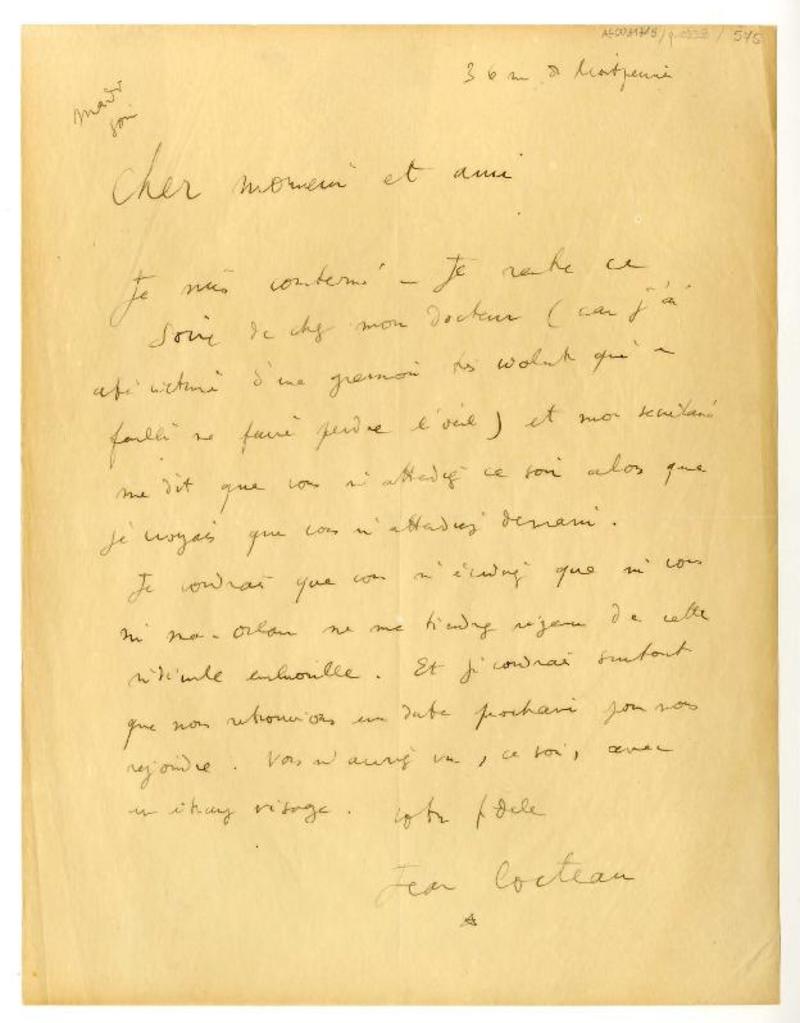 575
36 rue de Montpensier
mardi
soir
Cher monsieur et ami
Je suis consterné — Je rentre ce
soir de chez mon docteur (car j'ai
été victime d'une
failli me faire perdre l'œil) et mon secrétaire
me dit que vous m'attendiez ce soir alors que
je croyais que vous m'attendiez demain.
Je voudrais que vous m'écriviez que ni vous
ni Mac-Orlan ne me tiendrez rigueur de cette
ridicule embrouille. Et je voudrais surtout
que nous retrouvions une date prochaine pour nous
rejoindre. Vous m'auriez vu, ce soir, avec
un étrange visage. votre fidèle
Jean Cocteau